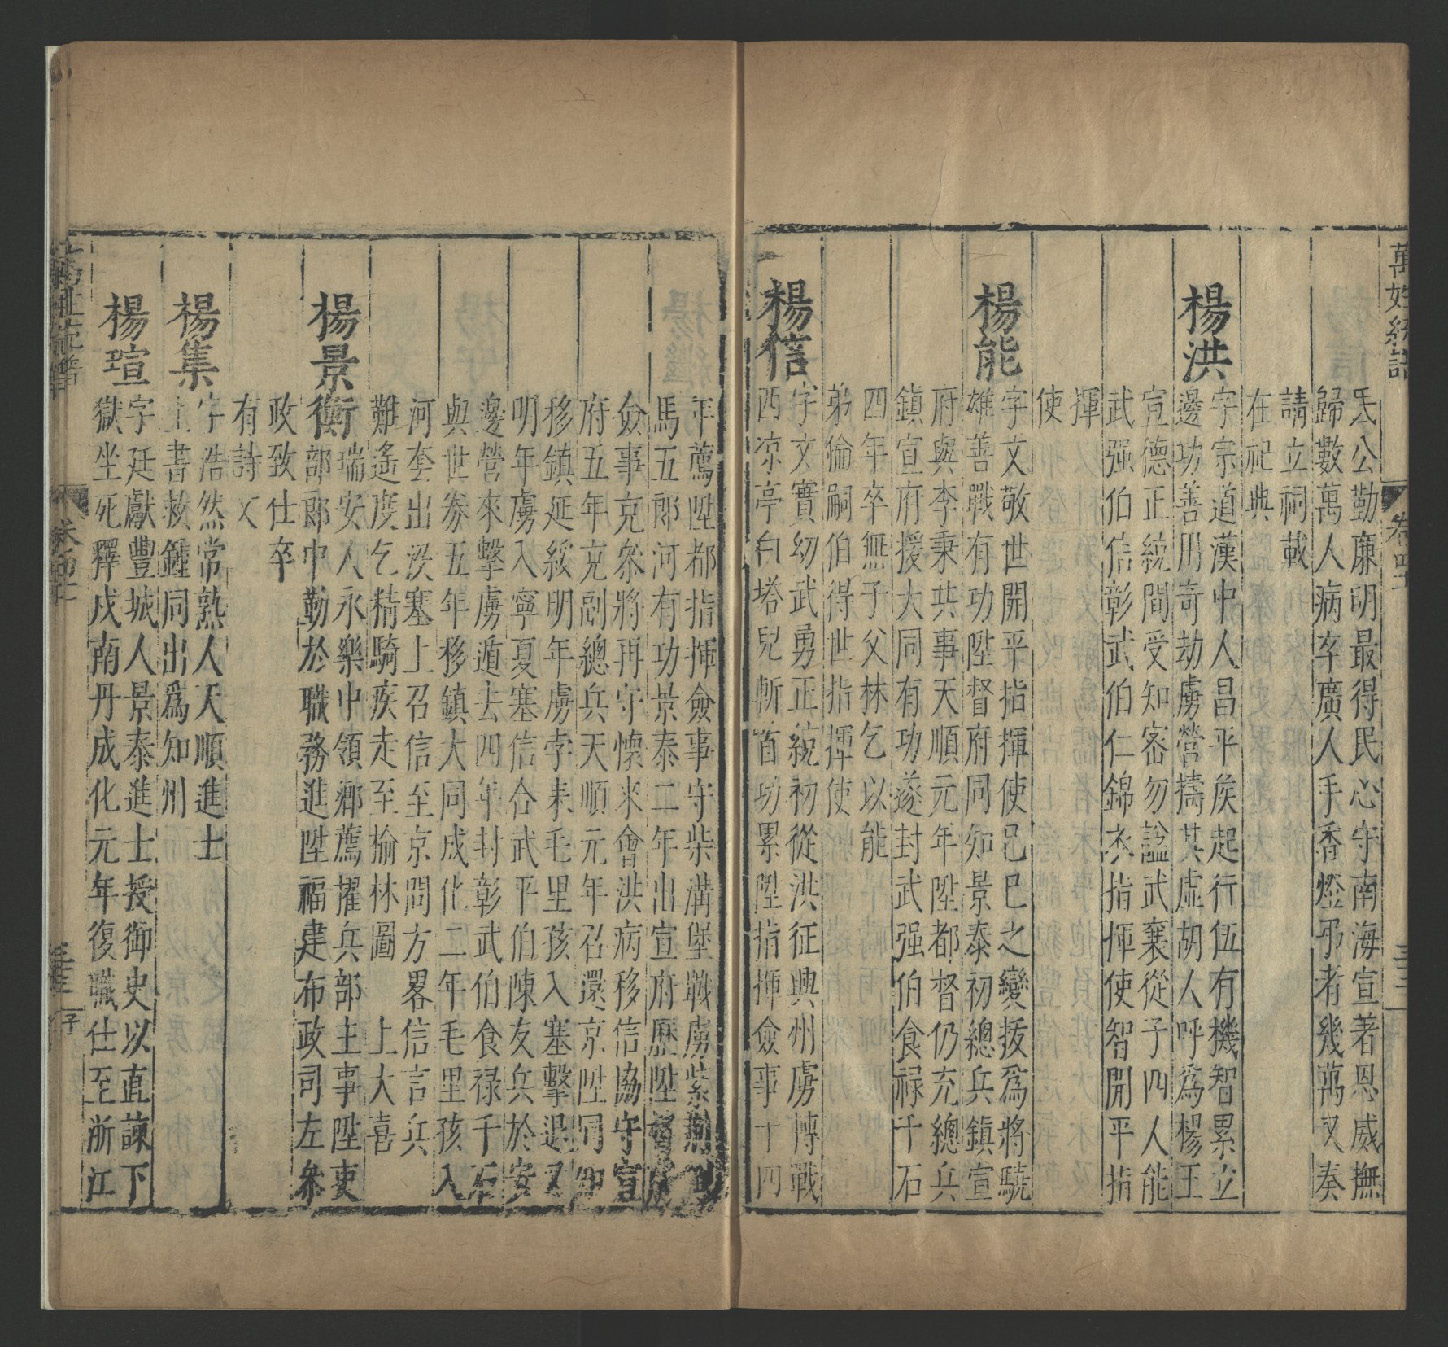 萬姓統譜 卷四十一
民公勤廉明最得民心守南海宣著恩威撫
歸數萬人病卒廣人手香燈弔者幾萬又奏
請立祠載
在祀典
楊洪
字宗道漢中人昌平矦起行伍有機智累立
邊功善用奇劫虜營擣其虛胡人呼爲楊王
宣德正統間受知寄勿謚武襄從子四人能
武强伯信彰武伯仁錦衣指揮使智開平指
揮
使
楊能
字文敬世開平指揮使己巳之變拔爲將驍
雄善戰有功陞督府同知景泰初總兵鎮宣
府與李秉共事天順元年陞都督仍充總兵
鎮宣府援大同有功遂封武强伯食祿千石
四年卒無子父林乞以能
弟倫嗣伯得世指揮使
楊信
字文實幼武勇正統初從洪征興州虜慱戰
西凉亭白塔兒斬首功累陞指揮僉事十四
年薦陞都指揮僉事守柴溝堡戰虜紫荆
馬五郎河有功景泰二年出宣府歷陞
僉事充叅將再守懷來會洪病移信協守宣
府五年充副總兵天順元年召還京陞同知
移鎮延綏明年虜孛來毛里孩入塞擊退又
明年虜入寧夏塞信合武平伯陳友兵於安
邊營來擊虜遁去四年封彰武伯食祿千石
與世券五年移鎮大同成化二年毛里孩入
河套出沒塞上召信至京問方畧信言兵
難遙度乞精騎疾走至榆林圖 上大喜
楊景衡
瑞安人永樂中領鄉薦擢兵部主事陞吏
部郎中勤於職務進陞福建布政司左叅
政致仕卒
有詩文
楊集
字浩然常熟人天順進士
上書救鍾同出爲知州
楊瑄
字廷獻豐城人景泰進士授御史以直諫下
獄坐死釋戍南丹成化元年復職仕至浙江